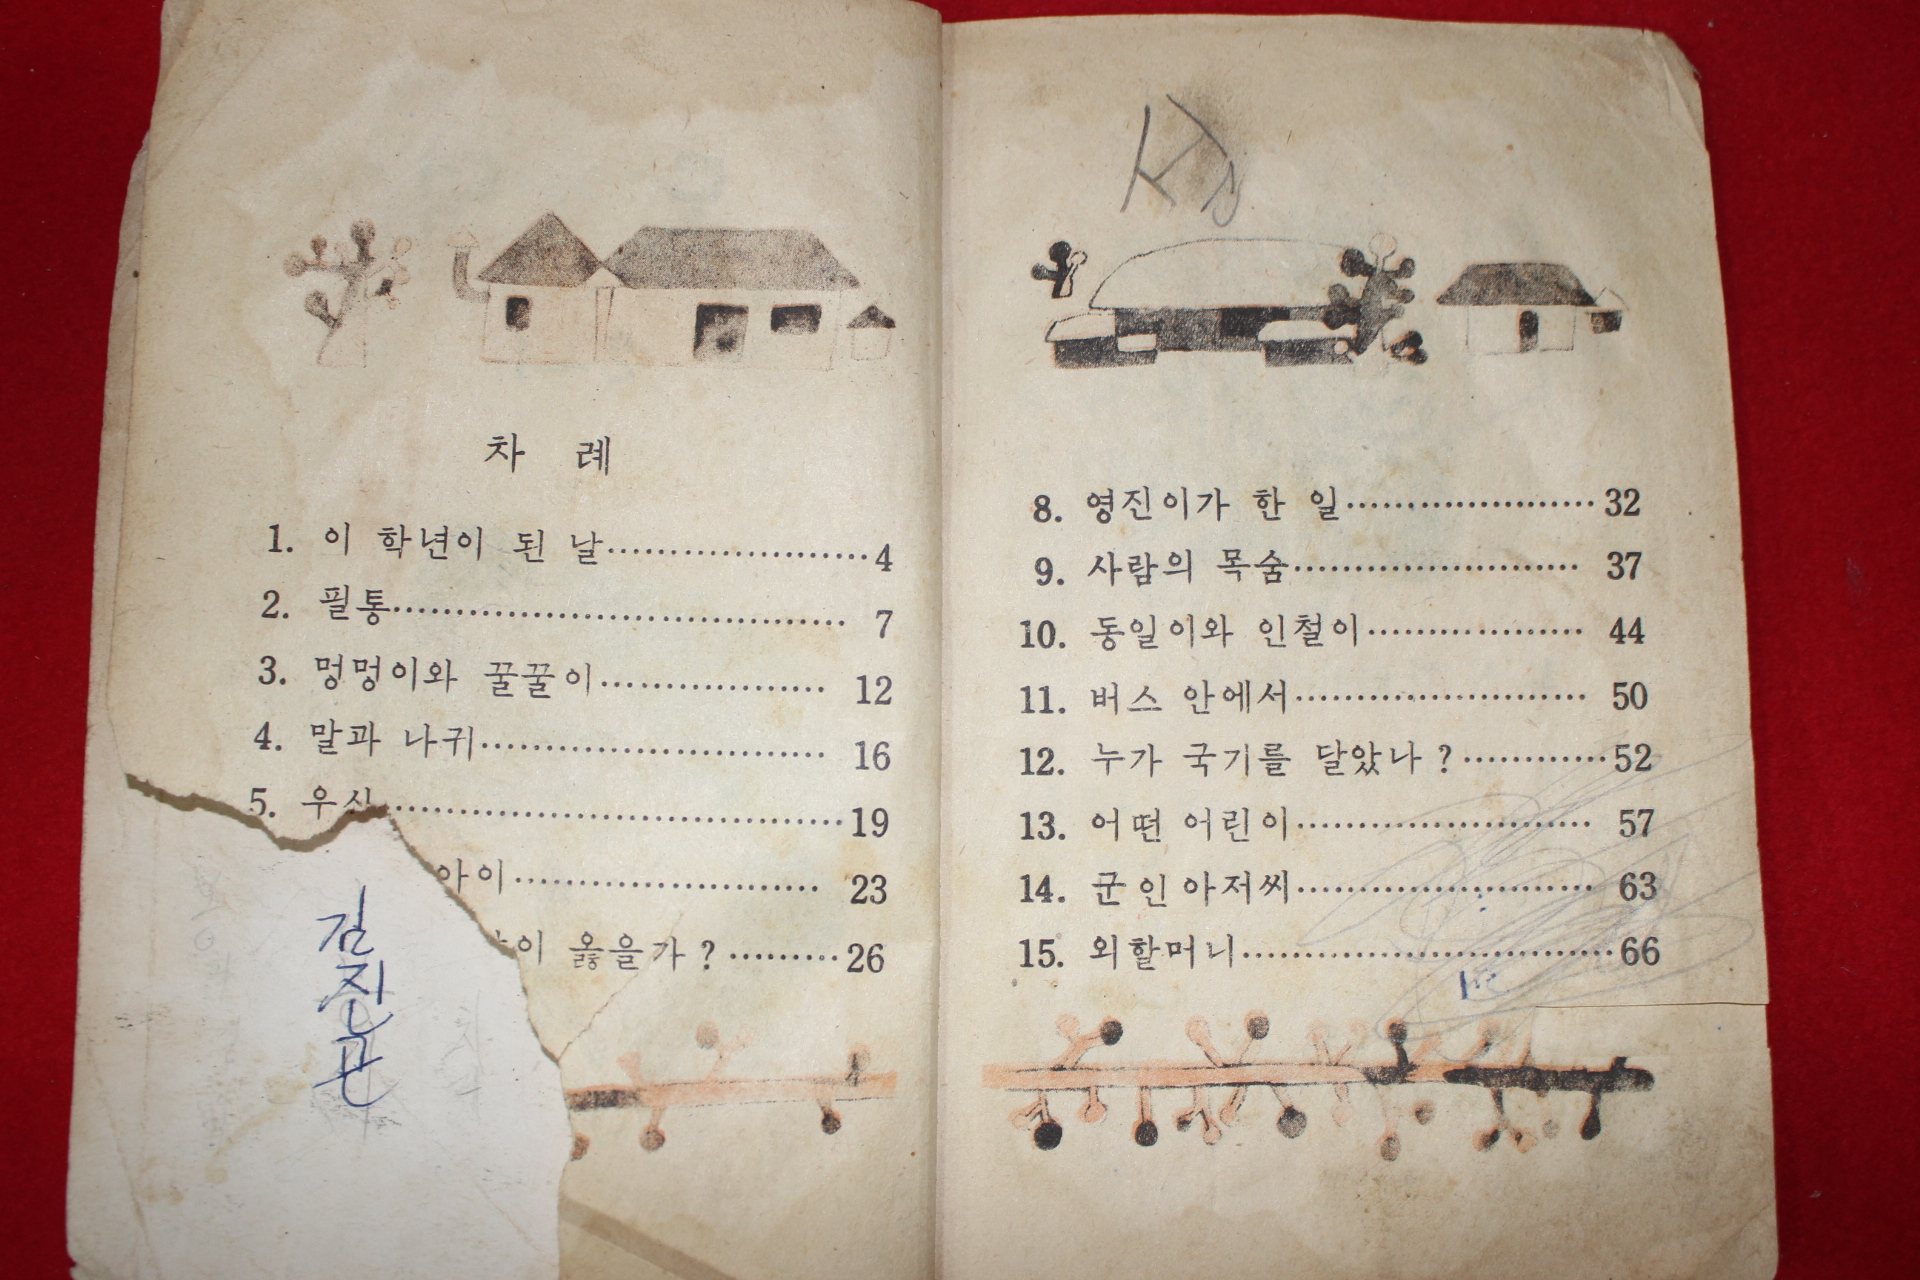 차 례
1. 이 학년이 된 날 4
2. 필통 7
3. 멍멍이와 꿀꿀이 12
4. 말과 나귀 16
5. 우산 19
아이 23
이 옳을가 ? 26
8. 영진이가 한 일 32
9. 사람의 목숨 37
10. 동일이와 인철이 44
11. 버스 안에서 50
12. 누가 국기를 달았나 ? 52
13. 어떤 어린이 57
14. 군인 아저씨 63
15. 외할머니 66